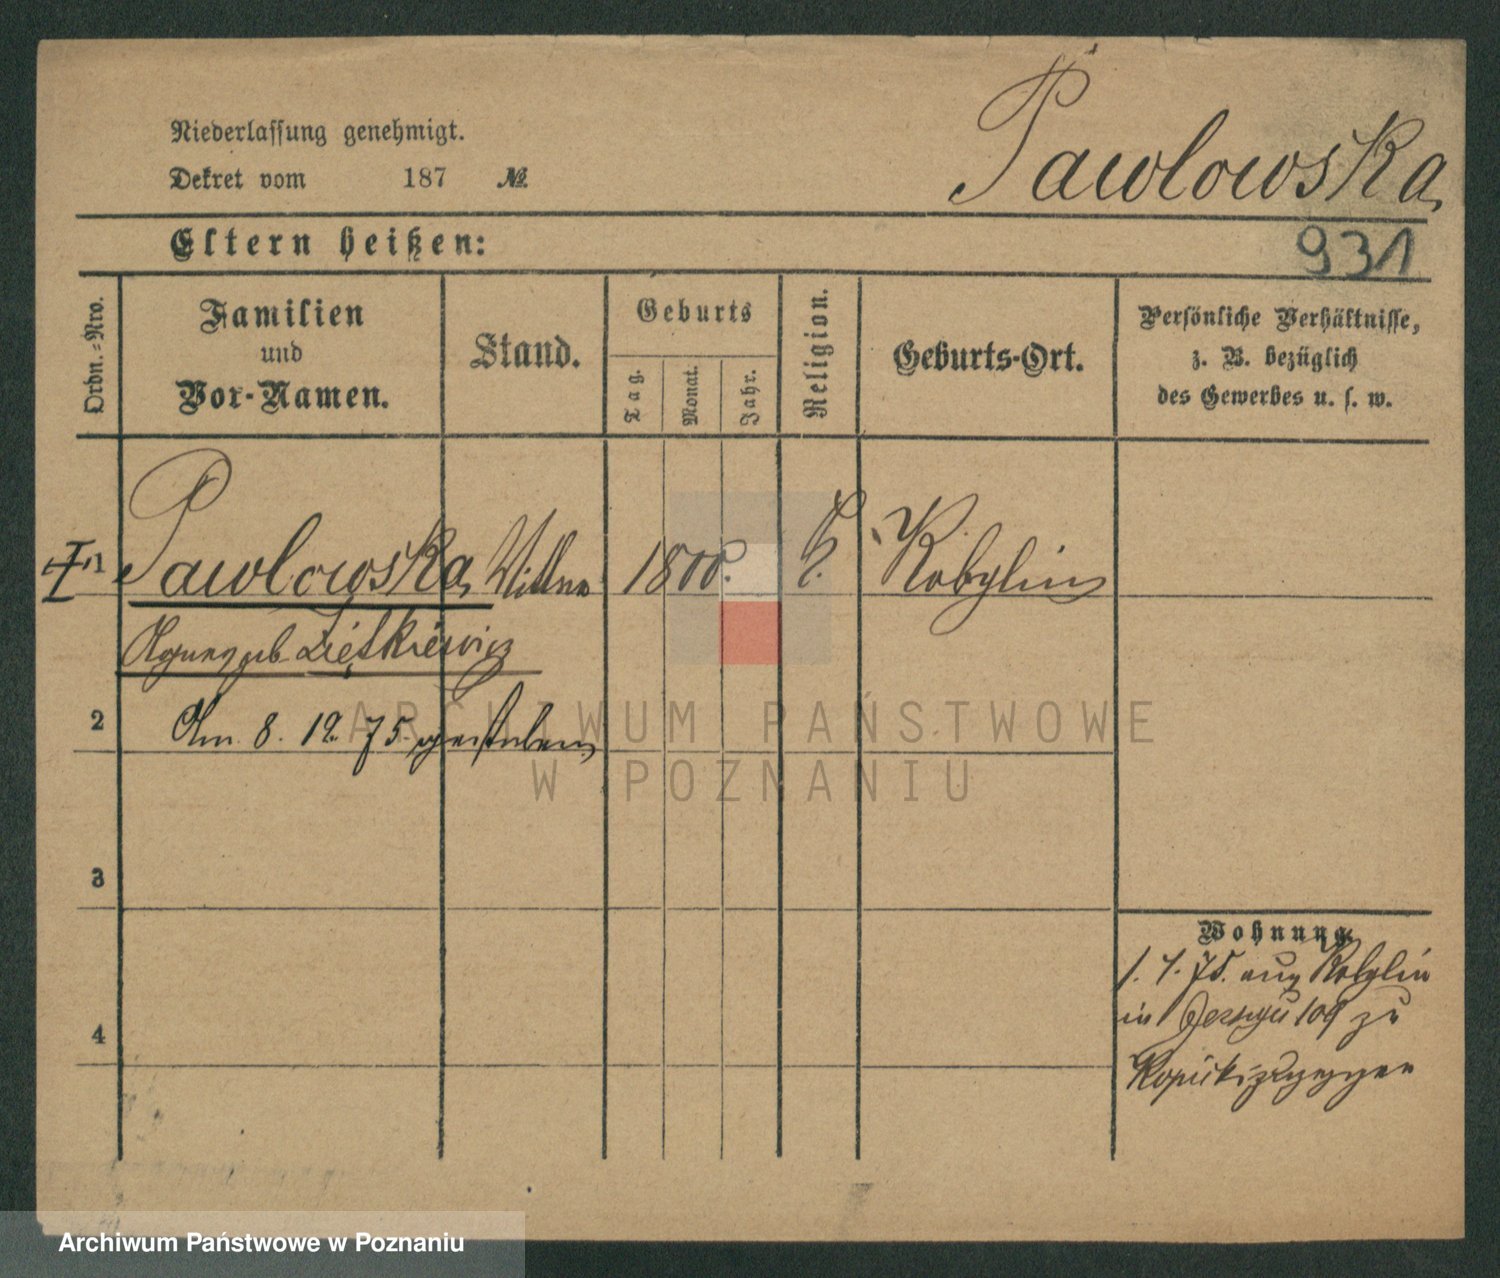 Niederlassung genehmigt.
Dekret vom 187 №
Pawlowska
Eltern heißen:
931
Ordn.-Nro.
Familien
und
Vor-Namen.
Stand.
Geburts
Tag.
Monat.
Jahr.
Religion.
Geburts-Ort.
Persönliche Verhältnisse,
z. B. bezüglich
des Gewerbes u. s. w.
1 Pawlowska 1800. Kobylin
geb Ziętkiewicz
2 Am 8. 12. 75. gestorben
3
4
Wohnung
1. 7. 75. aus Kobylin
in 109 zu
zugezogen
ARCHIWUM PAŃSTWOWE
W POZNANIU
Archiwum Państwowe w Poznaniu